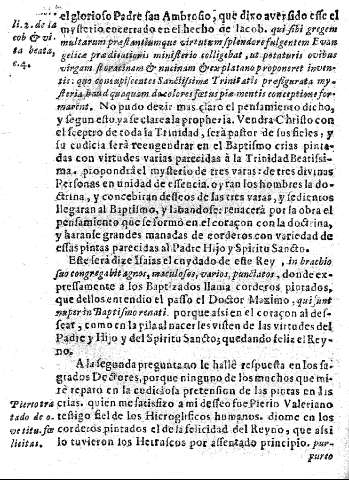 el glorioso Padre san Ambrosio, que dixo aver sido esse el
li. 2. de ia
cob & vi
ta beata,
c. 4.
mysterio encerrado en el hecho de Iacob. qui sibi gregem
multarum præstantiumque virtutum splendore fulgentem Evan
gelicæ prædicationis ministerio colligebat, ut potaturis ovibus
virgam storacinam & nucinam & ex platano proponeret inven-
tit: quo concupiscentes Sanctissimæ Trinitatis præfigurata my-
steria haud quaquam decolores fœtus piæ mentis conceptione for-
marent. No pudo dezir mas claro el pensamiento dicho,
y segun esto ya se clarea la prophecia. Vendra Christo con
el sceptro de toda la Trinidad, será pastor de sus fieles; y
su cudicia será reengendrar en el Baptismo crias pinta-
das con virtudes varias parecidas à la Trinidad Beatissi-
ma. propondrá el mysterio de tres varas: de tres divinas
Personas en unidad de essencia. oyran los hombres la do-
ctrina, y concebiran desseos de las tres varas, y sedientos
llegaran al Baptismo, y labandose: renacerá por la obra el
pensamiento que se formó en el coraçon con la doctrina,
y haranse grandes manadas de corderos con variedad de
essas pintas parecidas al Padre Hijo y Spiritu Sancto.
Este será dize Isaias el cuydado de este Rey, in brachio
suo congregabit agnos, maculosos, varios, punctatos, donde ex-
pressamente a los Baptizados llama corderos pintados,
que dellos entendio el passo el Doctor Maximo. qui sunt
nuper in Baptismo renati. porque assi en el coraçon al des-
sear, como en la pila al nacer les visten de las virtudes del
Padre y Hijo y del Spiritu Sancto; quedando feliz el Rey-
no.
A la segunda pregunta no le hallè respuesta en los sa-
grados Doctores, porque ninguno de los muchos que mi-
rè reparo en la cudiciosa pretension de las pintas en las
Pierio tra
tado de o-
ve titu. fæ
licitas.
crias. quien me satisfizo a mi desseo fue Pierio Valeriano
testigo fiel de los Hieroglificos humanos. diome en los
corderos pintados el de la felicidad del Reyno, que assi
lo tuvieron los Hetruscos por assentado principio. pur-
pureo